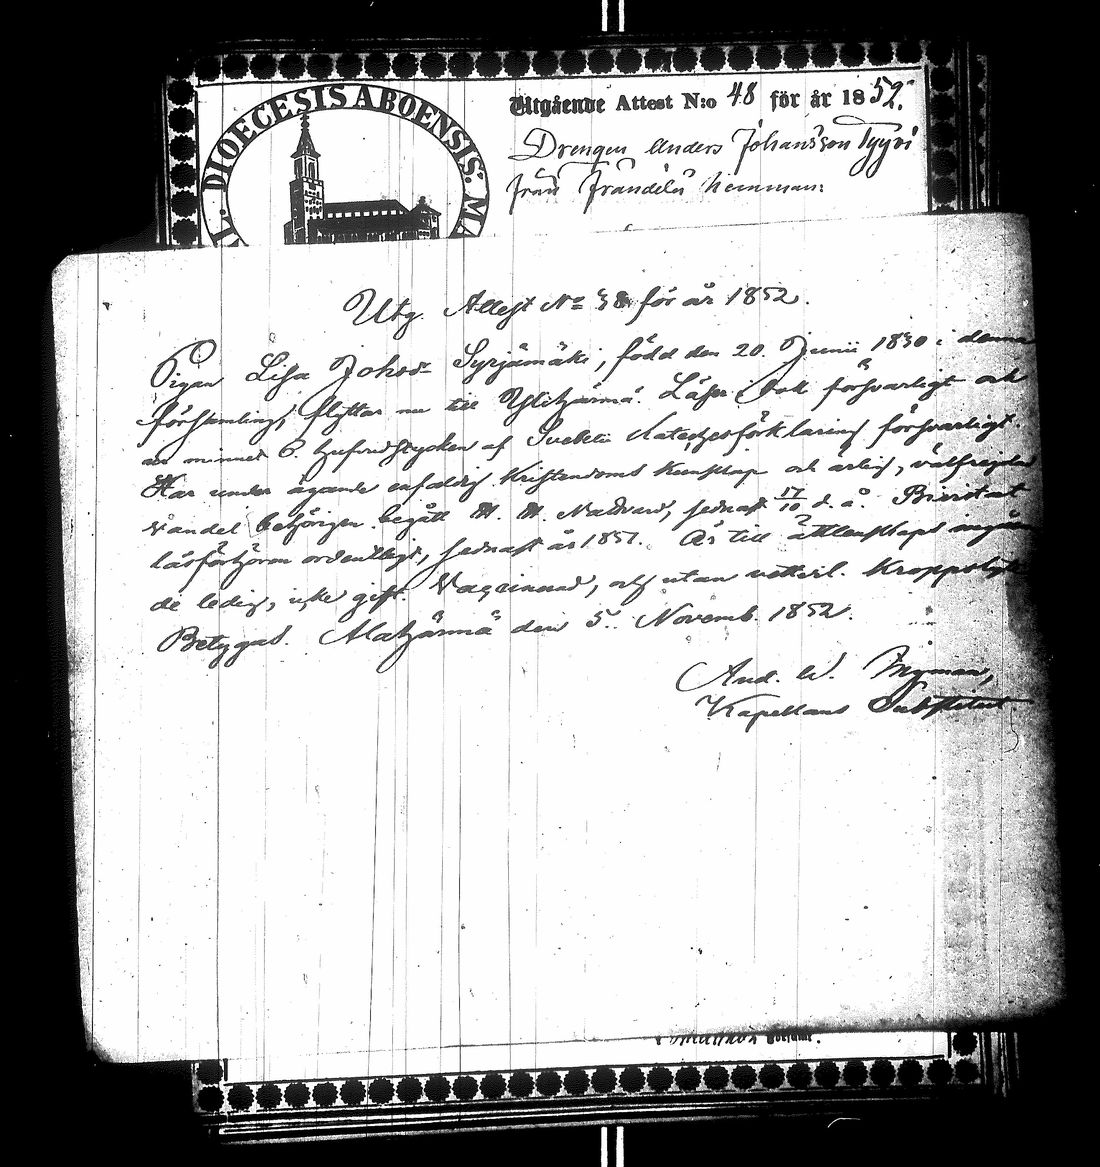 DIOECESIS ABOENSIS: MA
Utgående Attest N:o 48 för år 1852.
Drengen Anders Johansson Tyyri
från Frändilä hemman:
Utg. Attest No 38 för år 1852.
Pigan Lisa Johsdr Syrjämäki, född den 20. Junii 1830 i denna
församling, flyttar nu till Ylihärmä. Läser i bok försvarligt och
ur minnet 6. hufvudstycken af Svebelii Katechesförklaring försvarligt.
Har under ägande enfaldig Kristendoms Kunskap och ärlig, välfrejdad
vandel behörigen begått H. H. Nattvard, sednast 17/10 d. å. Bivistat
läsförhören ordentligt, sednast år 1851. Är till äktenskaps ingåen
de ledig, icke gift. Vaccinerad, och utan vetterl. Kroppslyte
Betygas. Alahärmä den 5. Novemb. 1852.
And. W. Ingman,
Kapellans Substitut